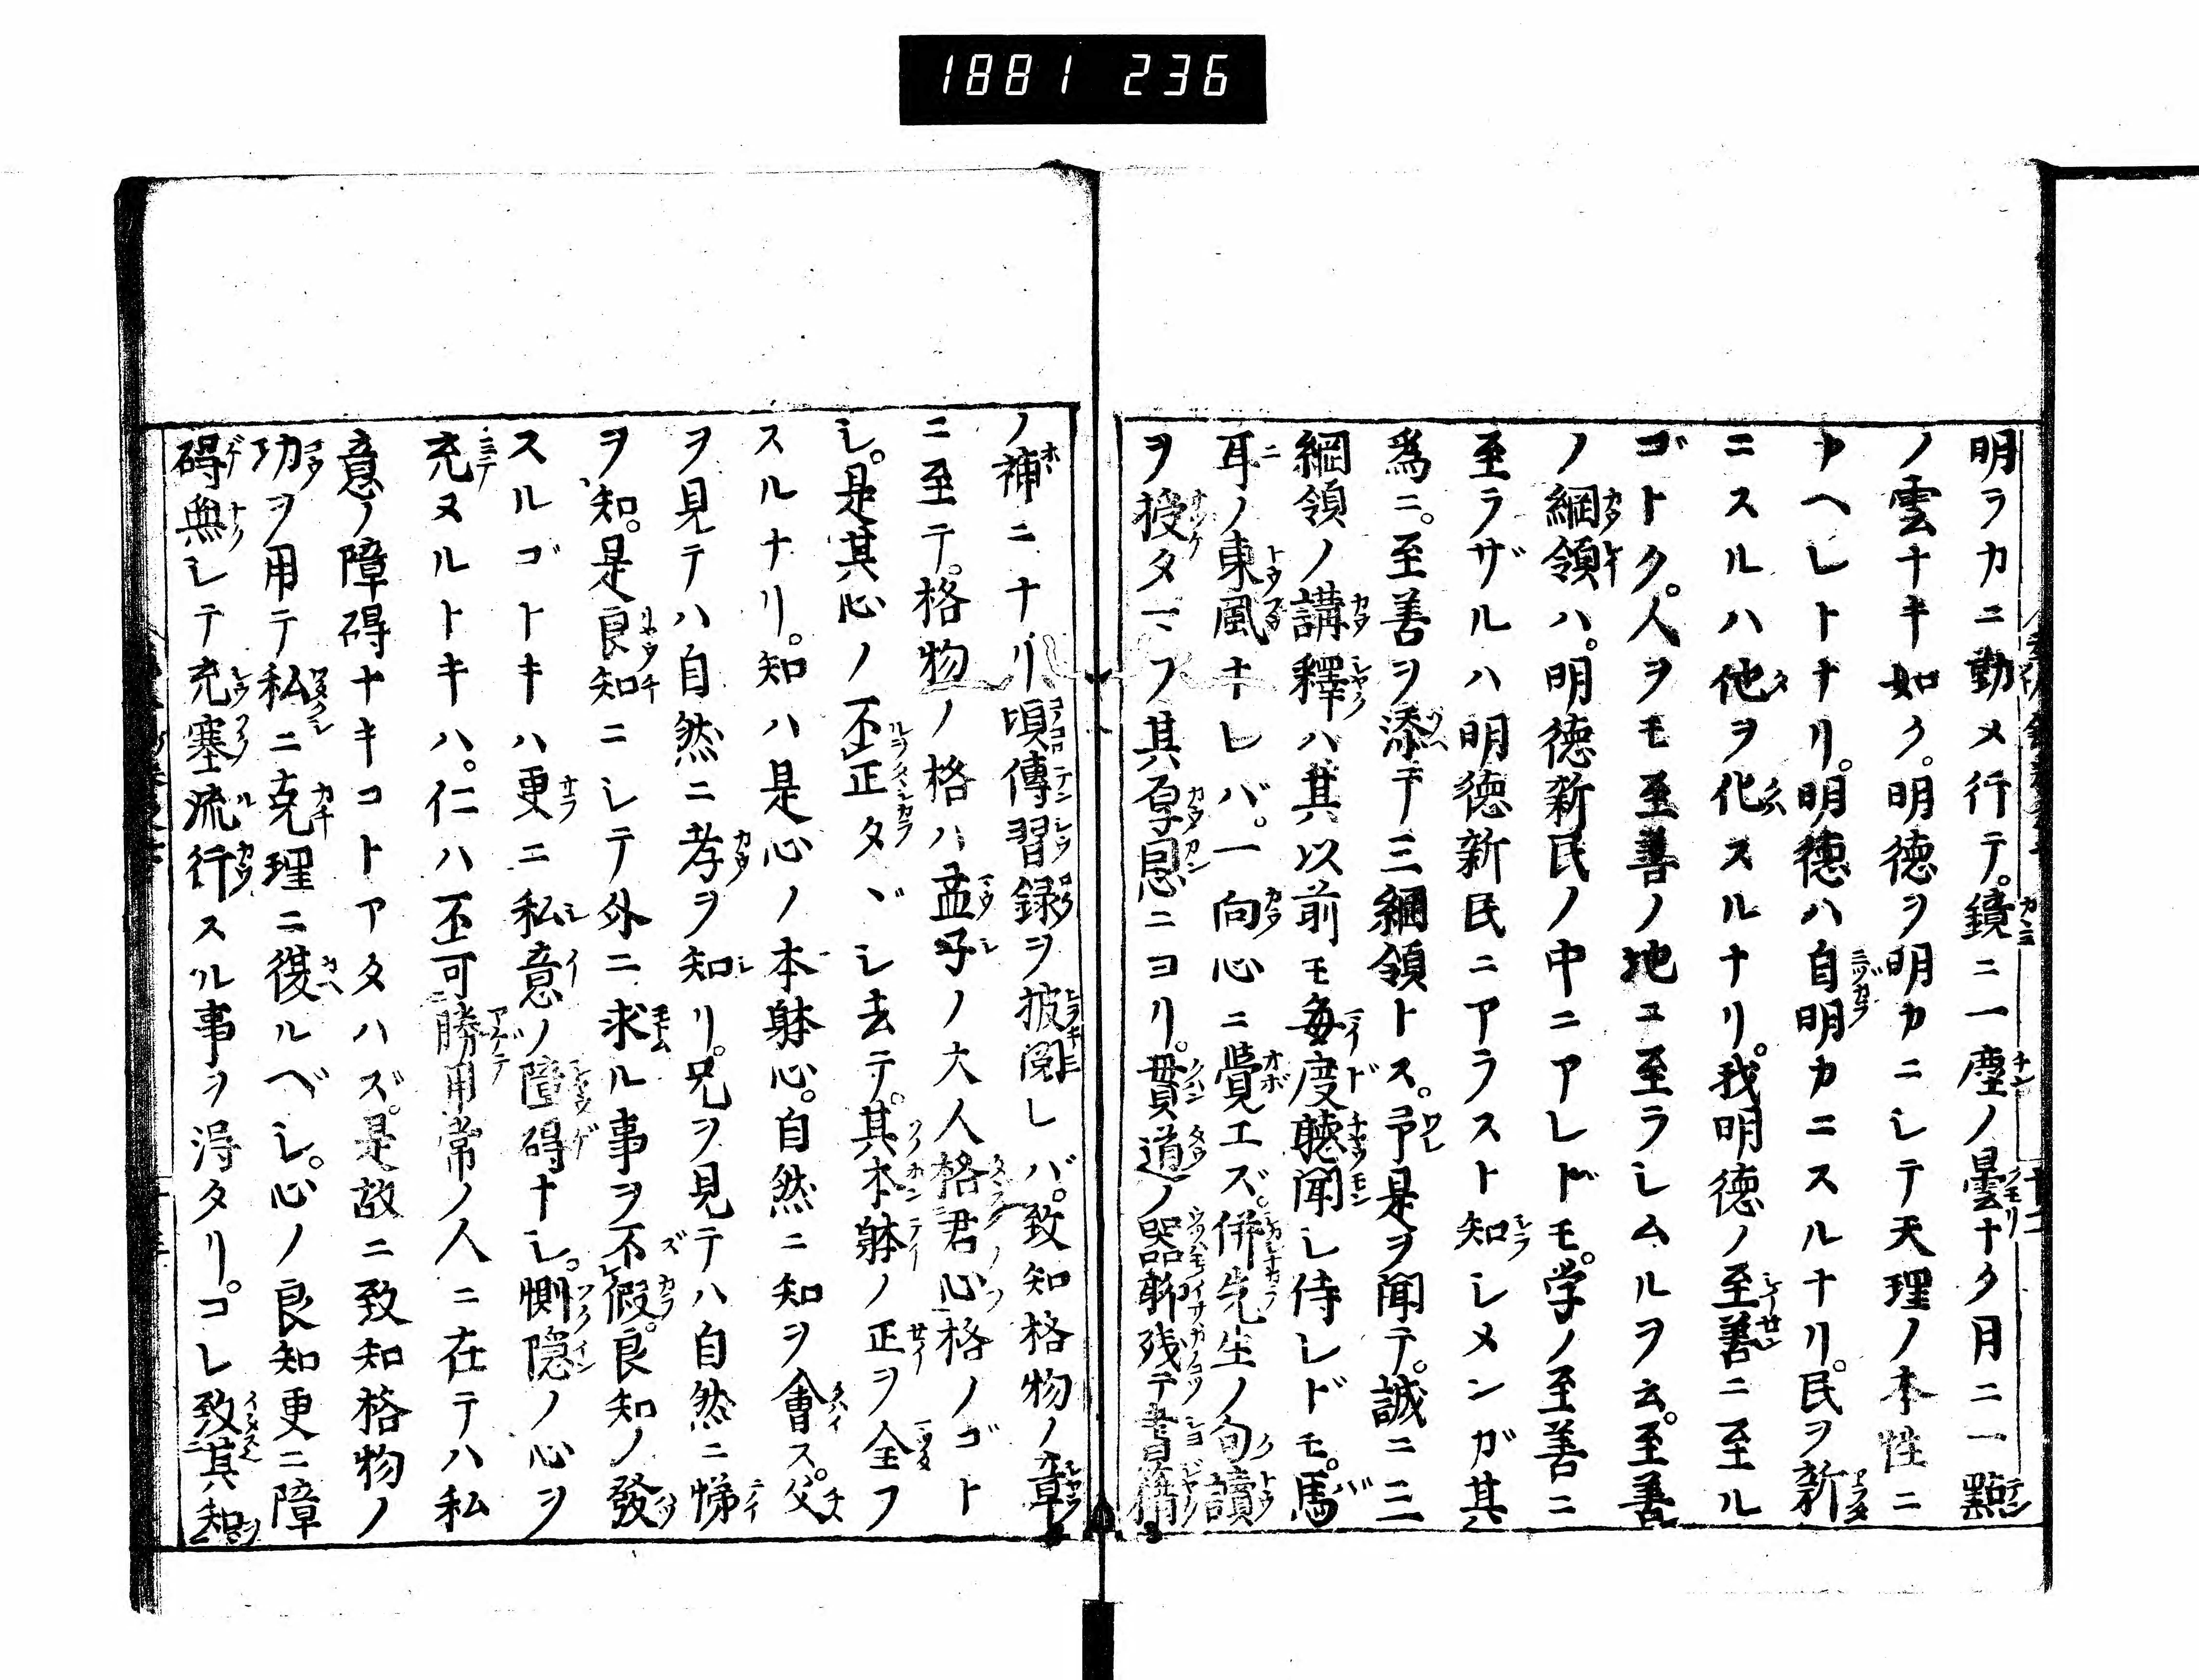 1881 236
明ラカニ勤メ行テ。鏡ニ一塵ノ曇ナク月ニ一點
ノ雲ナキ如ク。明徳ヲ明カニシテ天理ノ本性ニ
カヘレトナリ。明徳ハ自明カニスルナリ。民ヲ新
ニスルハ他ヲ化スルナリ。我明徳ノ至善ニ至ル
ゴトク。人ヲモ至善ノ地ニ至ラシムルヲ云。至善
ノ綱領ハ。明徳新民ノ中ニアレドモ。学ノ至善ニ
至ラザルハ明徳新民ニアラスト知シメンガ其
爲ニ。至善ヲ添テ三綱領トス。予是ヲ聞テ。誠ニ三
綱領ノ講釋ハ其以前モ毎度聴聞シ侍レドモ。馬
耳ノ東風ナレバ。一向心ニ覺エズ。併先生ノ句讀
ヲ授タマフ其厚恩ニヨリ。貫道ノ器聊残テ書籍
ノ補ニナリ頃傳習録ヲ披閲シバ。致知格物ノ章
ニ至テ。格物ノ格ハ孟子ノ大人格君心格ノゴト
シ。是其心ノ不正タヾシ去テ。其本躰ノ正ヲ全フ
スルナリ。知ハ是心ノ本躰心。自然ニ知ヲ會ス。父
ヲ見テハ自然ニ孝ヲ知リ。兄ヲ見テハ自然ニ悌
ヲ知。是良知ニシテ外ニ求ル事ヲ不假。良知ノ發
スルゴトキハ更ニ私意ノ障碍ナシ。惻隠ノ心ヲ
充ヌルトキハ。仁ハ不可勝用常ノ人ニ在テハ私
意ノ障碍ナキコトアタハズ。是故ニ致知格物ノ
功ヲ用テ私ニ克理ニ復ルベシ。心ノ良知更ニ障
碍無シテ充塞流行スル事ヲ得タリ。コレ致其知